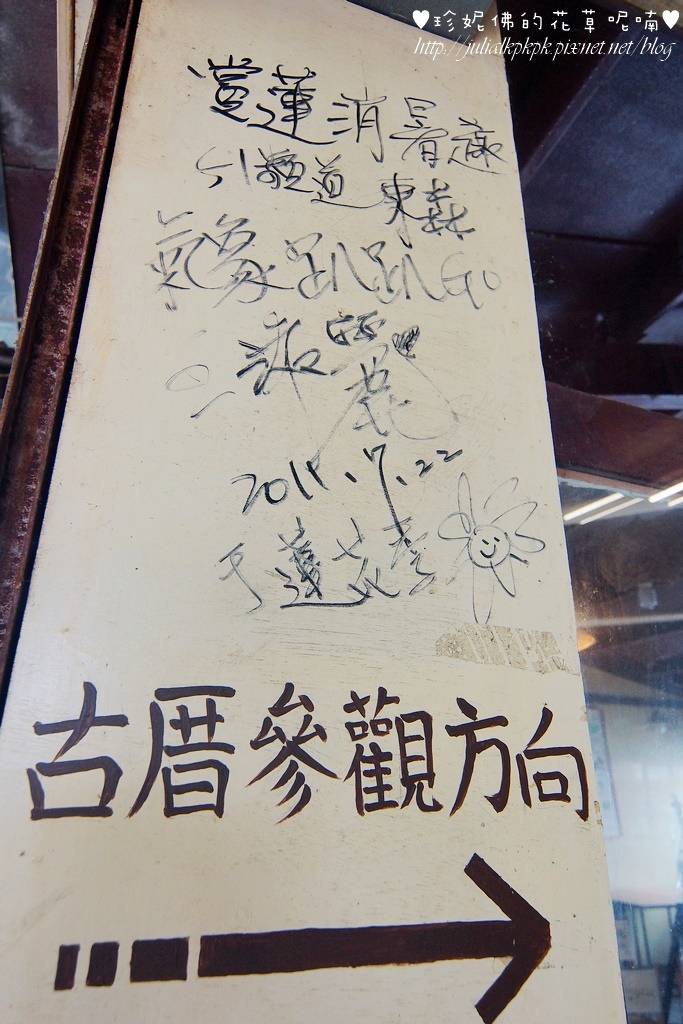 ♥珍妮佛的花草呢喃♥
http://julialkpkpk.pixnet.net/blog
賞蓮消暑趣
51頻道 東森
氣象趴趴GO
2011.7.22
于蓮花季
古厝參觀方向